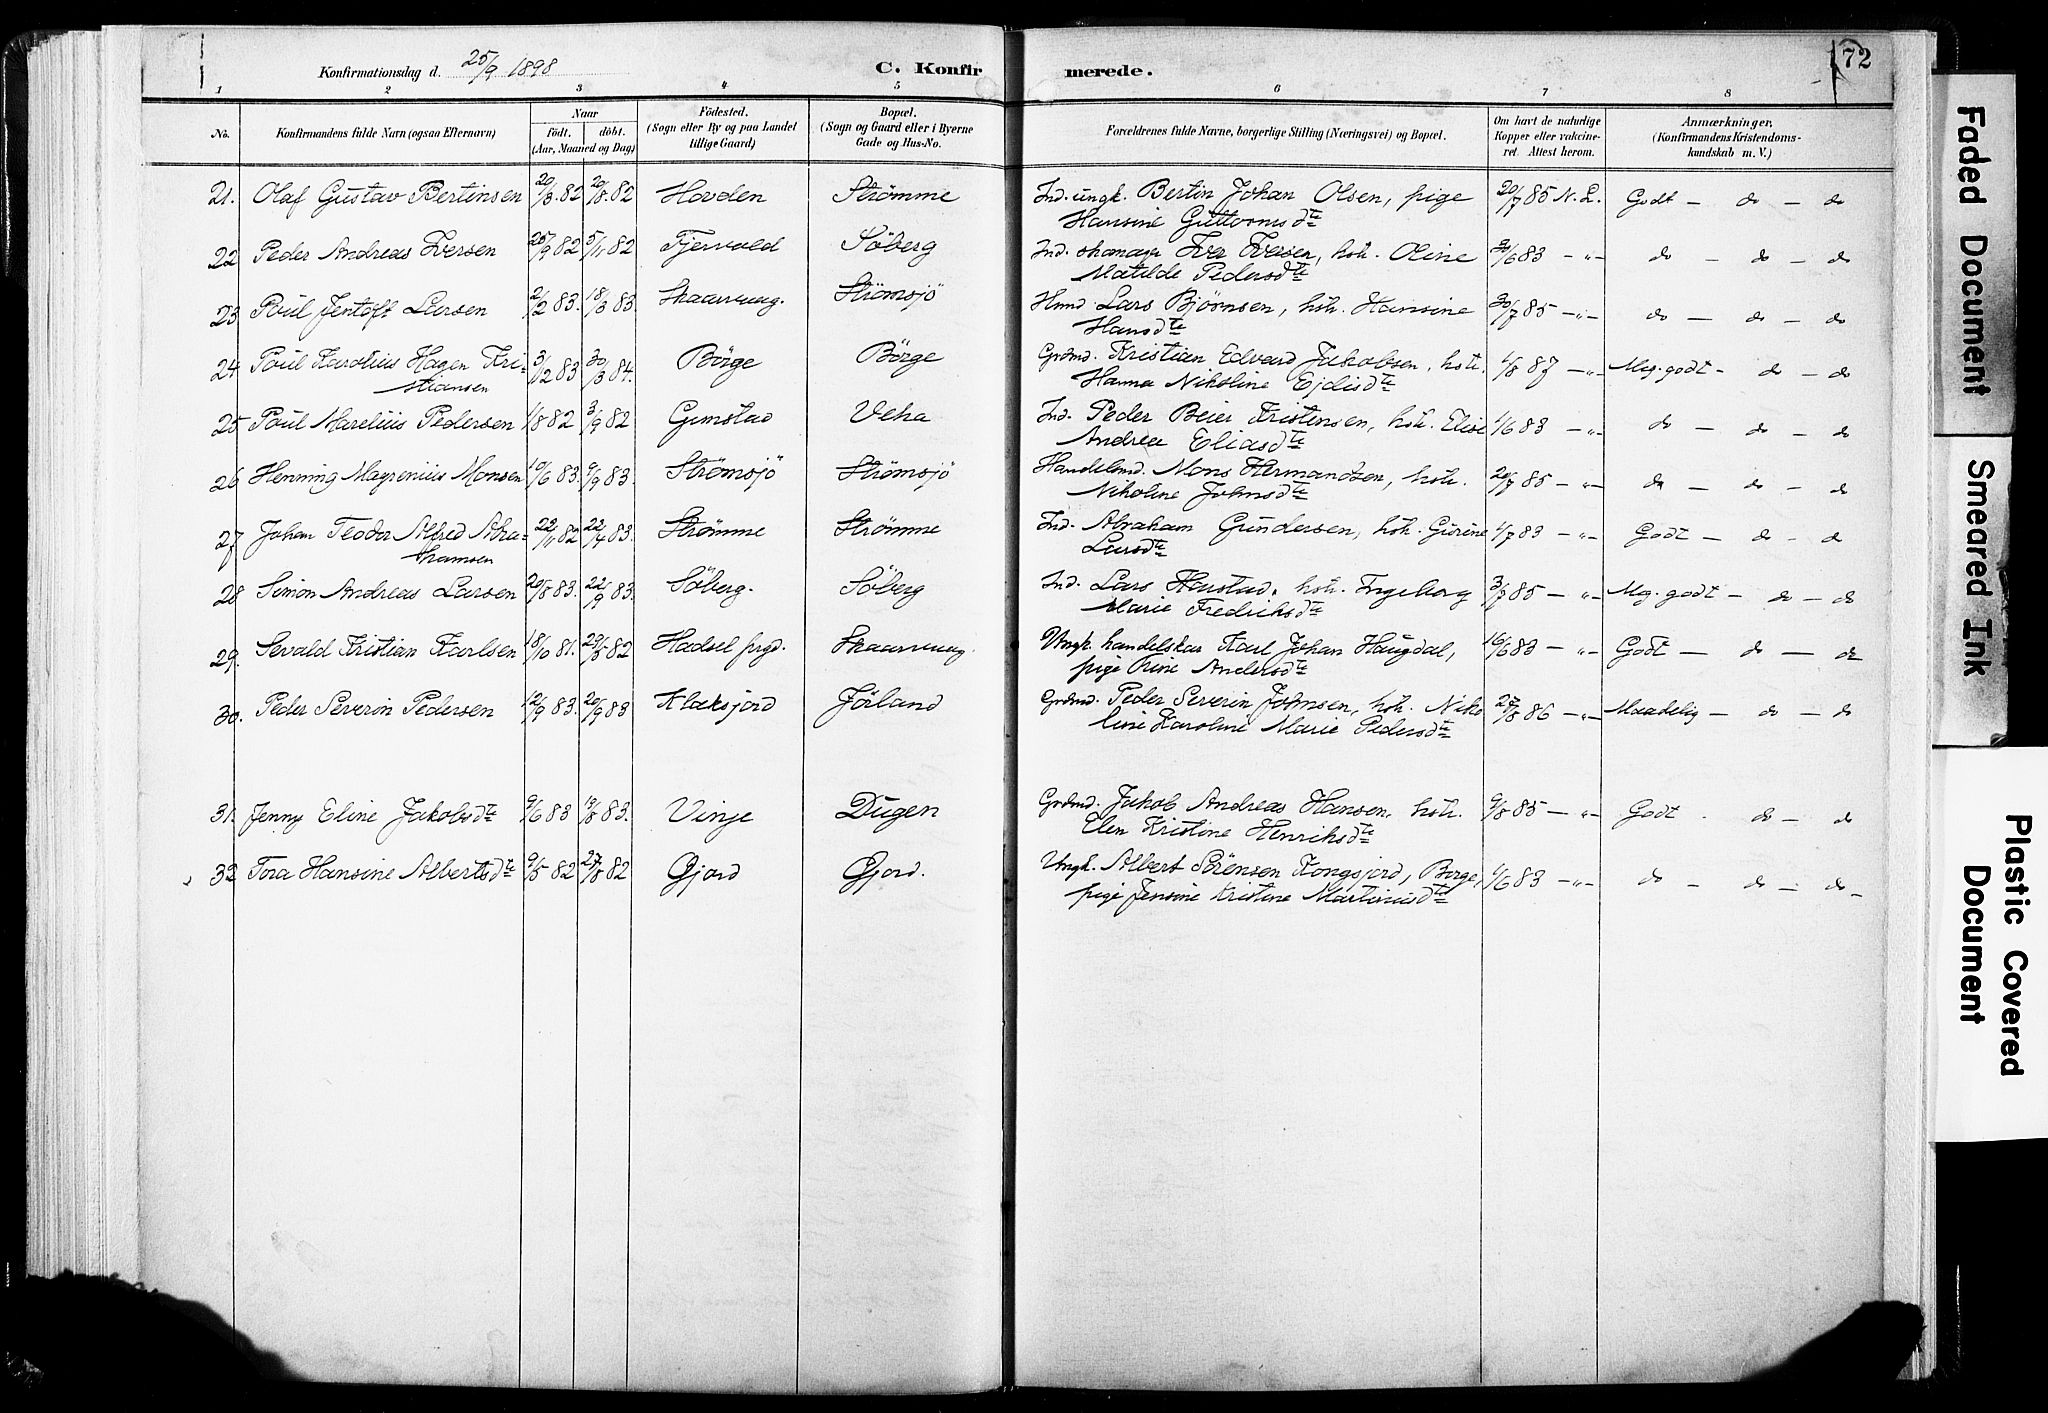 Konfirmationsdag d. 25/9 1898 C. Konfirmerede. 72
1 2 3 4 5 6 7 8
No. Konfirmandens fulde Navn (ogsaa Efternavn) Naar født. døbt. (Aar, Maaned og Dag) Fødested. (Sogn eller By og paa Landet tillige Gaard) Bopæl. (Sogn og Gaard eller i Byerne Gade og Hus-No. Forældrenes fulde Navne, borgerlige Stilling (Næringsvei) og Bopæl. Om havt de naturlige Kopper eller vakcineret. Attest herom. Anmærkninger, (Konfirmandens Kristendomskundskab m. V.)
21. Olaf Gustav Bertinsen 20/3.82 20/8.82 Hovden Strømme Ind. ungk. Bertin Johan Olsen, pige 20/7 85 N. L. Godt — do — do
Hansine Guttormsdte
22 Peder Andreas Iversen 25/9 82 5/11 82 Tjervold Söberg Ind. Iver Iversen, hstr. Oline 30/6 83 — „ — do — do — do
Matilde Pedersdte
23 Poul Jentoft Larsen 2/2 83. 18/3 83. Skaarvaag. Strömsjö Hmd. Lars Bjørnsen, hstr. Hansine 30/7 85 — „ — do — do — do
Hansdte
24 Poul Karolius Hagen Kri- 3/12 83 30/3 84. Börge Börge Grdmd. Kristian Edvard Jakobsen, hstr. 1/8 87 — „ — Meg. godt — do — do
stiansen Hanna Nikoline Ejdisdte
25 Poul Marelius Pedersen 1/8 82 3/9 82 Gimstad Veha Ind. Peder Beier Kristensen, hstr. Elise 1/6 83 — „ — do — do — do
Andrea Eliasdte
26 Henning Magrenius Monsen 10/6 83. 9/9 83. Strömsjö Strömsjö Handelsmd. Mons Hermandsen, hstr. 20/7 85 — „ — do — do — do
Nikoline Johnsdte
27 Johan Teodor Alfred Abra- 22/11 82 22/4 83. Strømme Strømme Ind. Abraham Gundersen, hstr. Gurine 1/7 83 — „ — Godt — do — do
hamsen Larsdte
28 Simon Andreas Larsen 20/8 83. 22/9 83. Söberg. Söberg Ind. Lars Haustad, hstr. Ingeborg 3/7 85 — „ — Meg. godt — do — do
Marie Fredriksdte
29. Sevald Kristian Karlsen 18/10 81. 29/5 82 Hadsel prgd. Skaarvaag. Ungk. handelskar Karl Johan Haugdal, 16/6 83 — „ — Godt — do — do
pige Rine Andersdte
30. Peder Severin Pedersen 12/9 83. 20/9 83 Klaksjord Jörland Grdmd. Peder Severin Johnsen, hstr. Niko 27/8 86 — „ — Maadelig — do — do
line Karoline Marie Pedersdte
31. Jenny Eline Jakobsdte 9/6 83 19/8 83. Vinje Dugen Grdmd. Jakob Andreas Hansen, hstr. 9/8 85 — „ — Godt . do — do
Elen Kristine Henriksdte
32 Tora Hansine Albertsdte 9/5 82 27/8 82 Gjord Gjord. Ungk. Albert Sörensen Kongsjord, Borge, 1/6 83 — „ — do — do — do —
pige Jensine Kristine Martinusdte
Faded Document
Smeared Ink
Plastic Covered Document